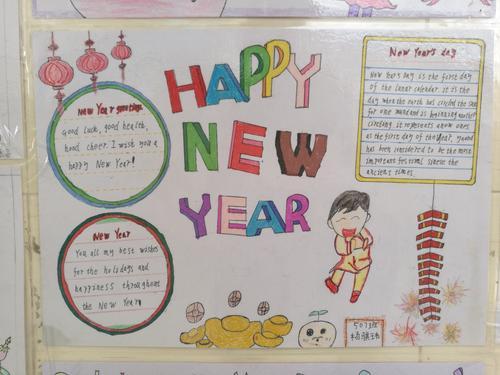 HAPPY
NEW
YEAR
New Year greetings
Good luck, good health,
hood cheer. I wish you a
happy New Year!
New Year
You all my best wishes
for the holidays and
happiness throughout
the New Year
New Year's day
New Years Day is the first day
of the lunar calender. it is the
day when the earth has circled the sun
for one and and is beginning another
circling. it repesents ahow ones
at the first day of the year,
has been considered to be the most
important festival since the
ancient times.
507班